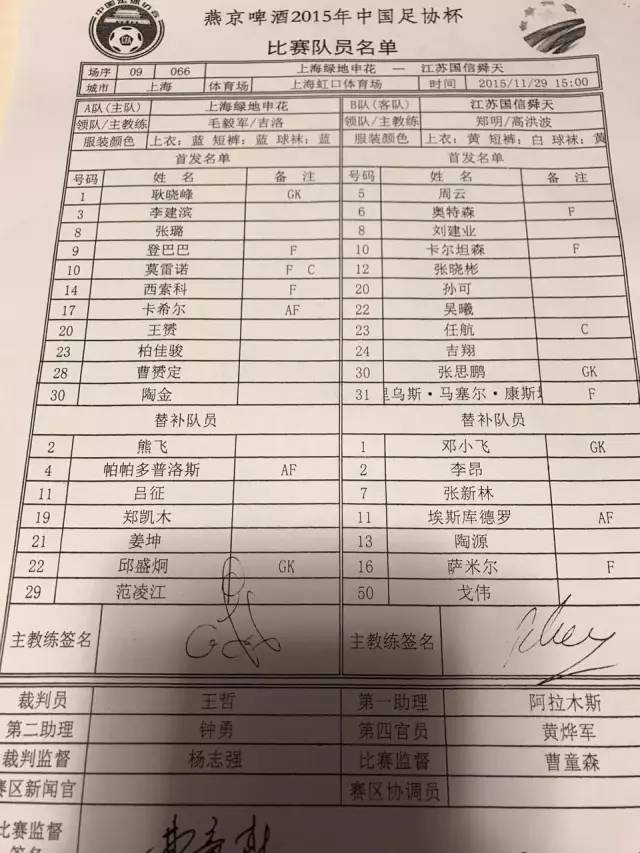 燕京啤酒2015年中国足协杯
比赛队员名单
场序 09 066 上海绿地申花 — 江苏国信舜天
城市 上海 体育场 上海虹口体育场 时间 2015/11/29 15:00
A队(主队) 上海绿地申花 B队(客队) 江苏国信舜天
领队/主教练 毛毅军/吉洛 领队/主教练 郑明/高洪波
服装颜色 上衣: 蓝 短裤: 蓝 球袜: 蓝 服装颜色 上衣: 黄 短裤: 白 球袜: 黄
首发名单 首发名单
号码 姓名 备注 号码 姓名 备注
1 耿晓峰 GK 5 周云
3 李建滨 6 奥特森 F
8 张璐 8 刘建业
9 登巴巴 F 10 卡尔坦森 F
10 莫雷诺 F C 12 张晓彬
14 西索科 F 20 孙可
17 卡希尔 AF 22 吴曦
20 王赟 23 任航 C
23 柏佳骏 24 吉翔
28 曹赟定 30 张思鹏 GK
30 陶金 31 里乌斯·马塞尔·康斯 F
替补队员 替补队员
2 熊飞 1 邓小飞 GK
4 帕帕多普洛斯 AF 2 李昂
11 吕征 7 张新林
19 郑凯木 11 埃斯库德罗 AF
21 姜坤 13 陶源
22 邱盛炯 GK 16 萨米尔 F
29 范凌江 50 戈伟
主教练签名 主教练签名
裁判员 王哲 第一助理 阿拉木斯
第二助理 钟勇 第四官员 黄烨军
裁判监督 杨志强 比赛监督 曹童森
赛区新闻官 赛区协调员
比赛监督
签名